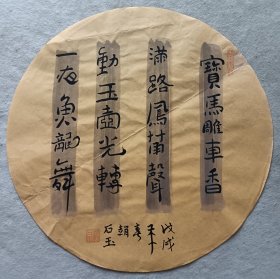 寶馬雕車香
滿路鳳簫聲
動玉壺光轉
一夜魚龍舞
戊戌
石玉